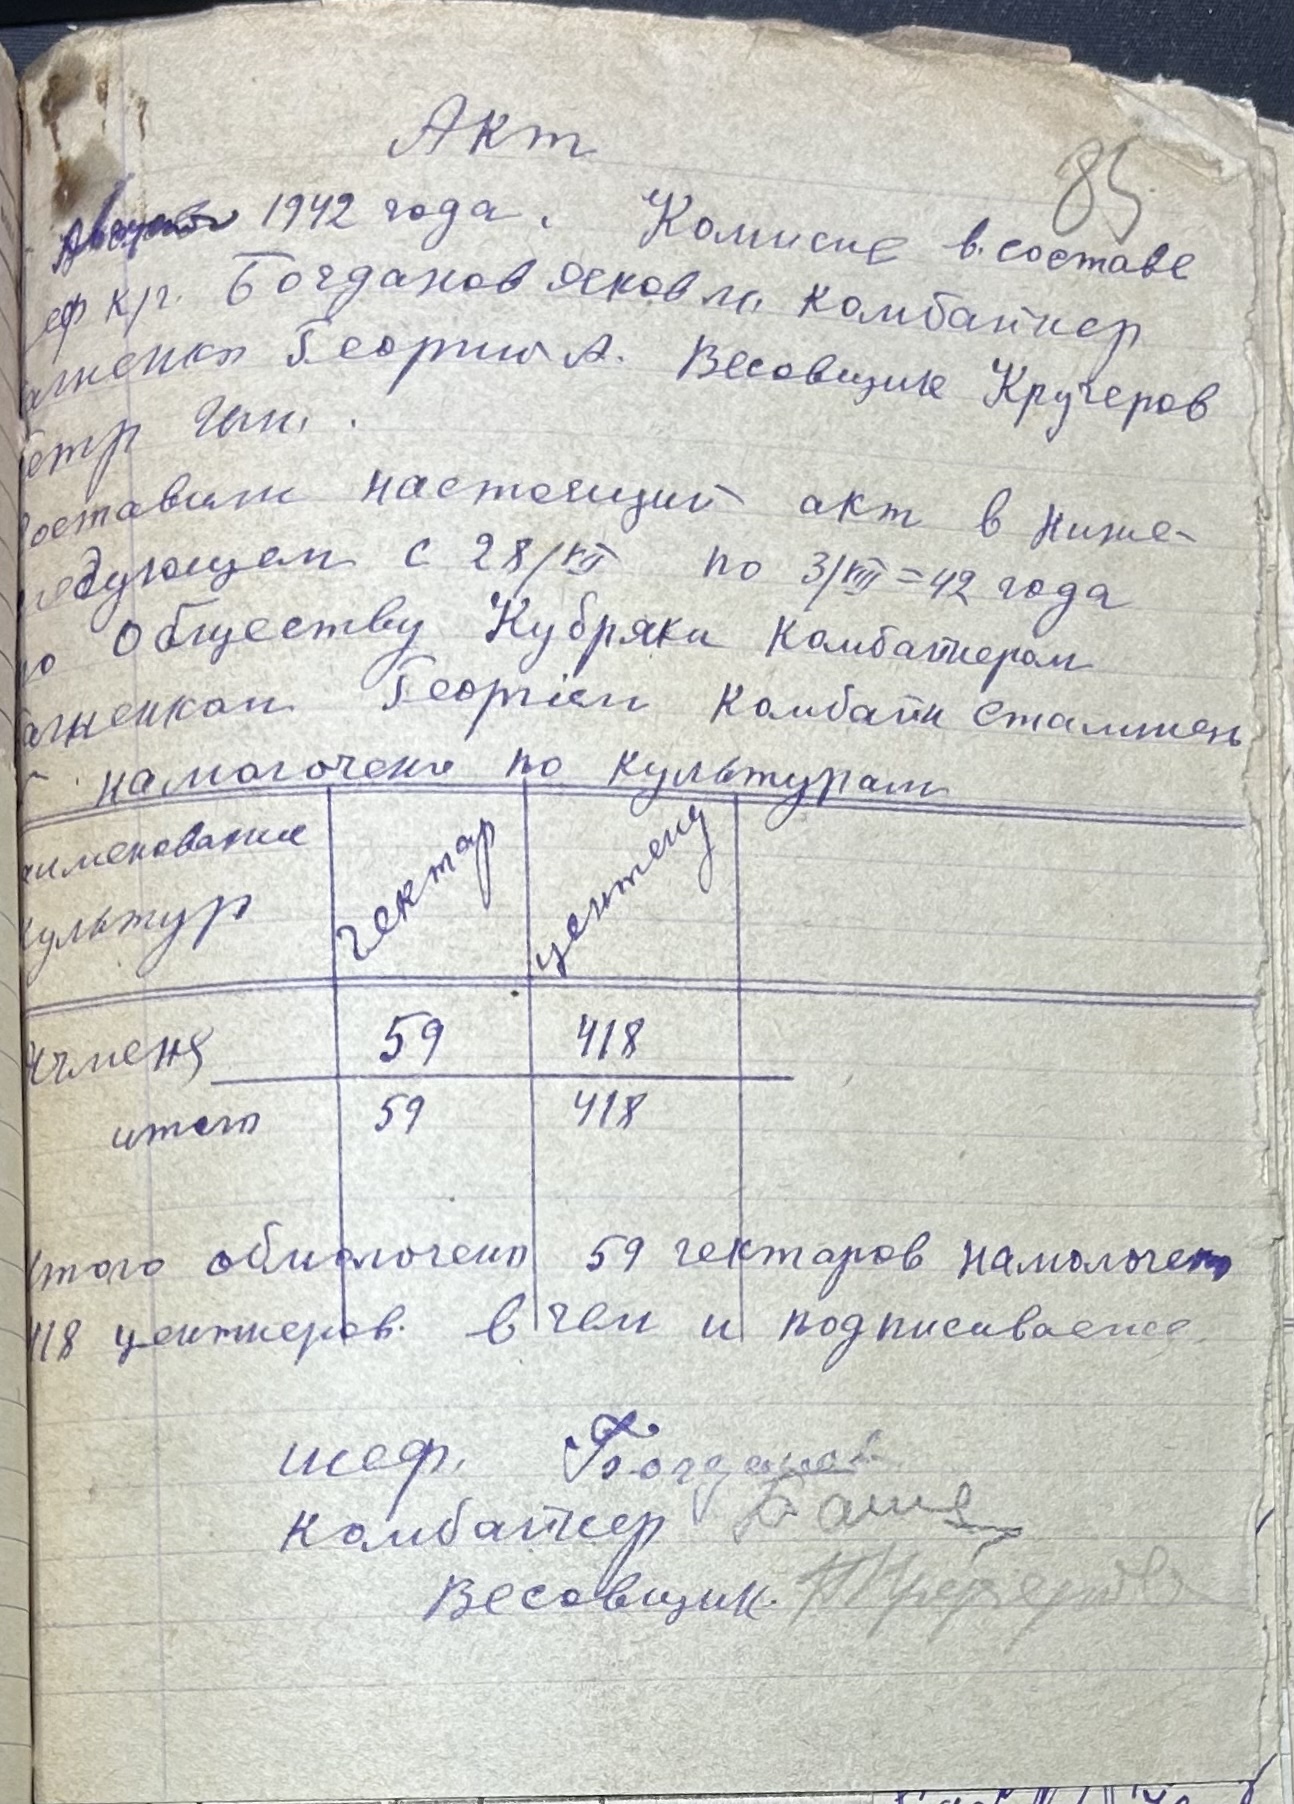 Акт
85
Августа 1942 года. Комисие в составе
еф кр. Богданов Яковл. комбайнер
агненко Георгий А. Весовщик Кручеров
етр
составили настоящий акт в ниже-
ледующем с 28/VII по 3/VIII=42 года
по обществу Кубряки Комбайнером
агненкам Георгием комбайн Сталинец
намолочено по культурам
аименование гектар центенц
культур
Ячменя 59 418
итого 59 418
Итого обмолочено 59 гектаров намолочено
418 центнеров. в чем и подписиваемся
шеф. Богданов
комбайнер
Весовщик.